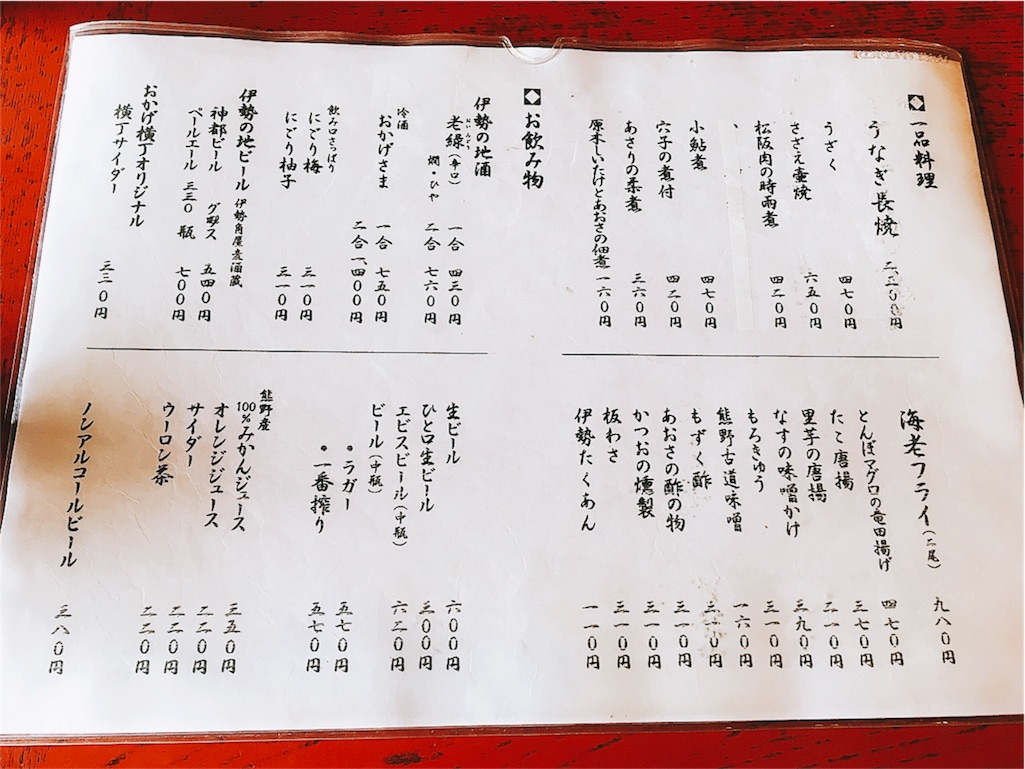 ◆一品料理
うなぎ長焼
うざく 四七〇円
さざえ壷焼 六五〇円
松阪肉の時雨煮 四二〇円
小鮎煮 四七〇円
穴子の煮付 四二〇円
あさりの柔煮 三六〇円
原木しいたけとあおさの佃煮 一六〇円
海老フライ(二尾) 九八〇円
とんぼマグロの竜田揚げ 四七〇円
たこ唐揚 三七〇円
里芋の唐揚 二一〇円
なすの味噌かけ 三九〇円
もろきゅう 三一〇円
熊野古道味噌 一六〇円
もずく酢 三一〇円
あおさの酢の物 三一〇円
かつおの燻製 三一〇円
板わさ 三一〇円
伊勢たくあん 一一〇円
◆お飲み物
伊勢の地酒
老緑(辛口) 一合 四三〇円
燗・ひや 二合 七六〇円
冷酒
おかげさま 一合 七五〇円
二合 一、四〇〇円
飲み口さっぱり
にごり梅 三一〇円
にごり柚子 三一〇円
伊勢の地ビール 伊勢角屋麦酒蔵
神都ビール グラス 五四〇円
ペールエール 三三〇 瓶 七〇〇円
おかげ横丁オリジナル
横丁サイダー 三三〇円
生ビール 六〇〇円
ひと口生ビール 三〇〇円
エビスビール(中瓶) 六二〇円
ビール(中瓶)
・ラガー 五七〇円
・一番搾り 五七〇円
熊野産
100%みかんジュース 三五〇円
オレンジジュース 二二〇円
サイダー 二二〇円
ウーロン茶 二二〇円
ノンアルコールビール 三八〇円